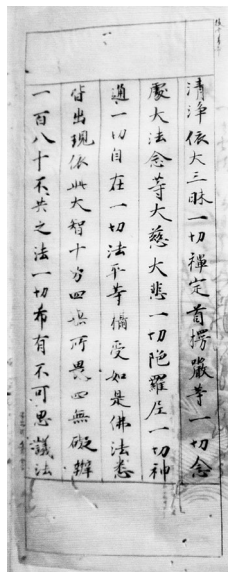 清淨依大三昧一切禪定首楞嚴等一切念
處大法念等大慈大悲一切陁羅尼一切神
通一切自在一切法平等攝受如是佛法悉
皆出現依此大智十力四無所畏四無礙辯
一百八十不共之法一切希有不可思議法